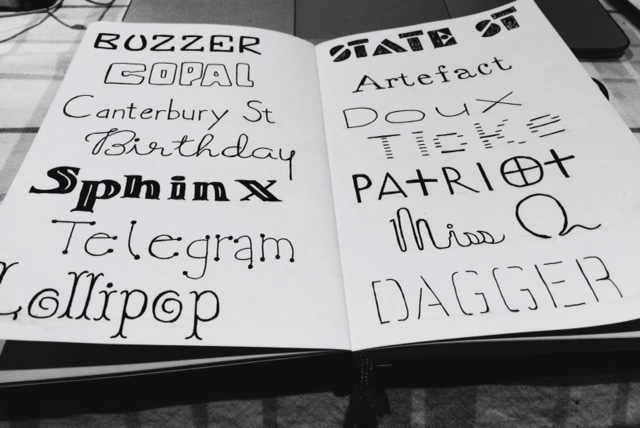 BUZZER
COPAL
Canterbury St
Birthday
Sphinx
Telegram
Lollipop
STATE ST
Artefact
DOUX
TICKS
PATRIOT
Miss Q
DAGGER